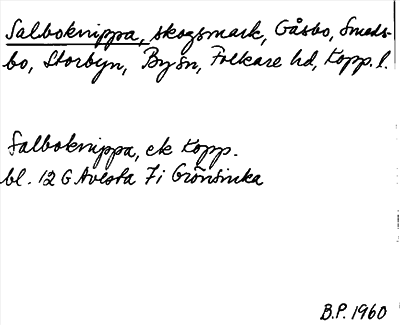 Salboknippa, skogsmark, Gåsbo, Smeds-
bo, Storbyn, By sn, Folkare hd, Kopp. l.
Salboknippa, ek Kopp.
bl. 12 G Avesta 7i Grönsinka
B.P. 1960